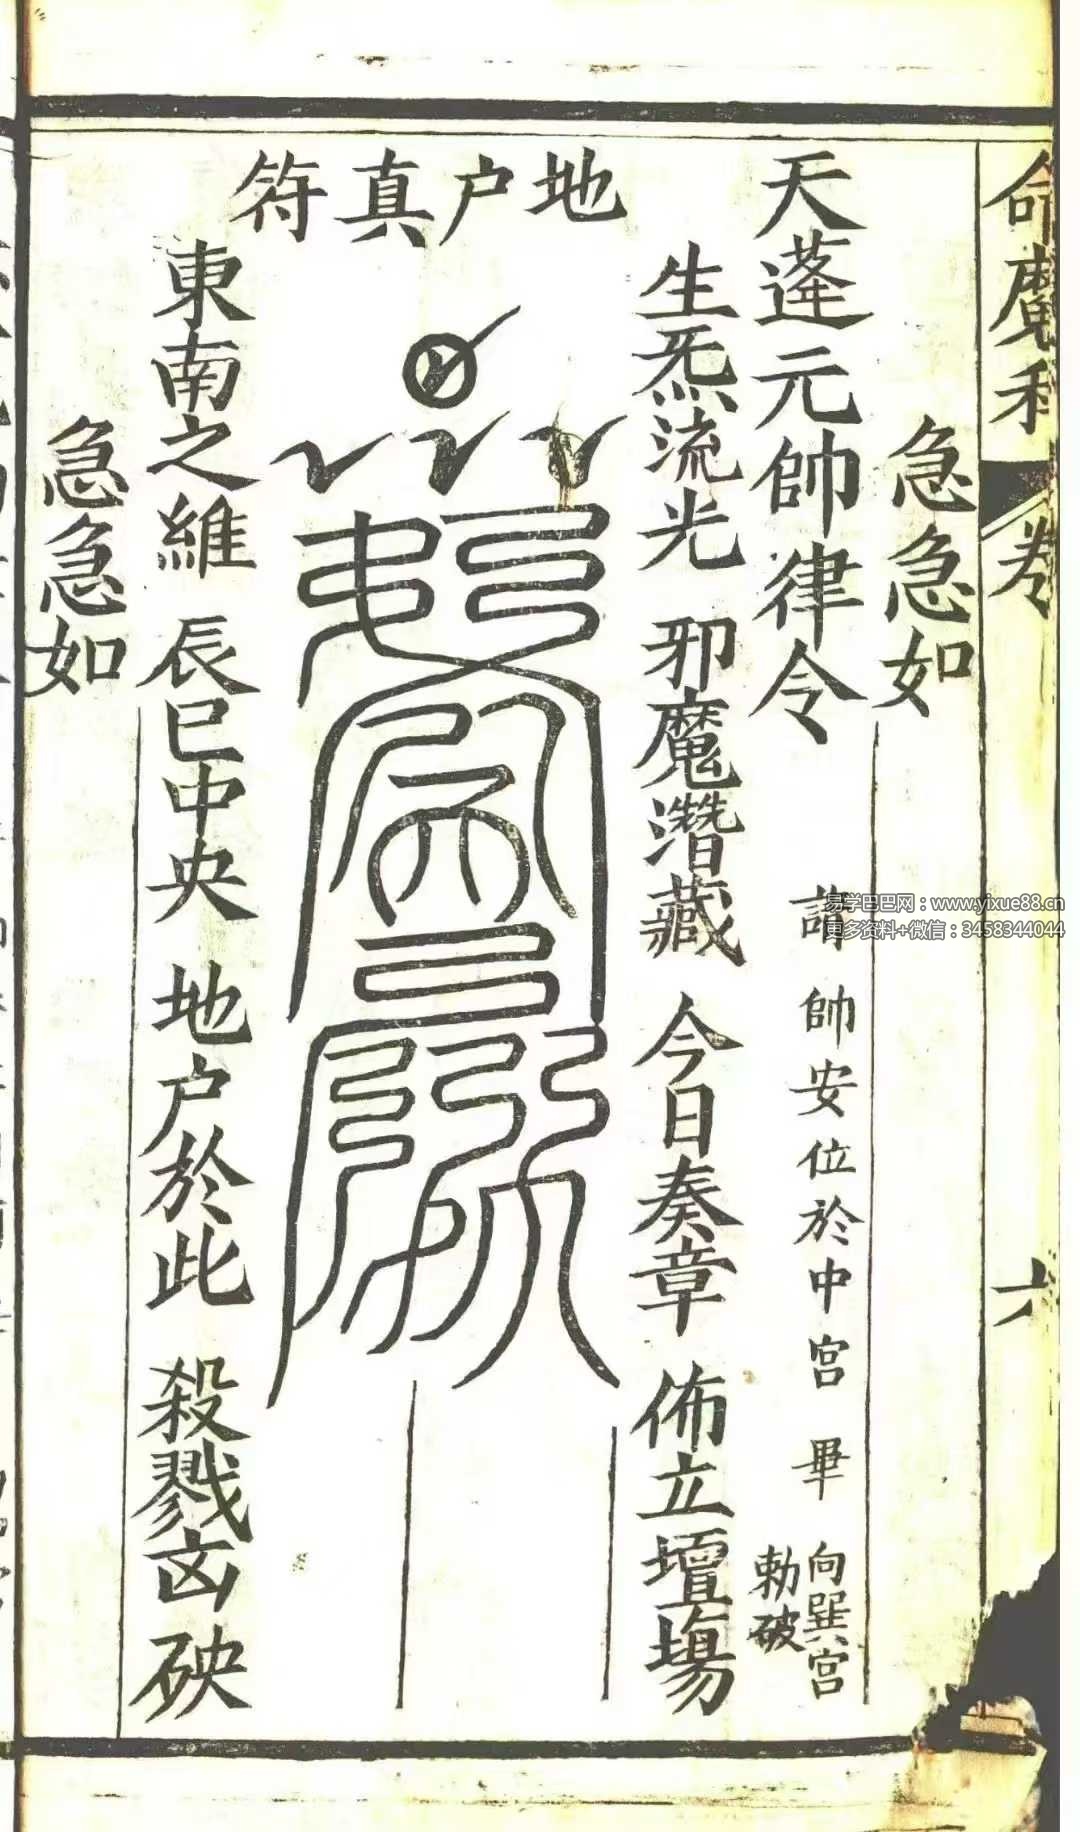 命魔科 卷 六
急急如
天蓬元帥律令
謂帥安位於中宮 畢
向巽宮
勅破
地户真符
生炁流光 邪魔潛藏 今日奏章 佈立壇場
東南之維 辰巳中央 地户於此 殺戮凶砆
急急如
易学巴巴网：www.yixue88.cn
更多资料+微信：3458344044